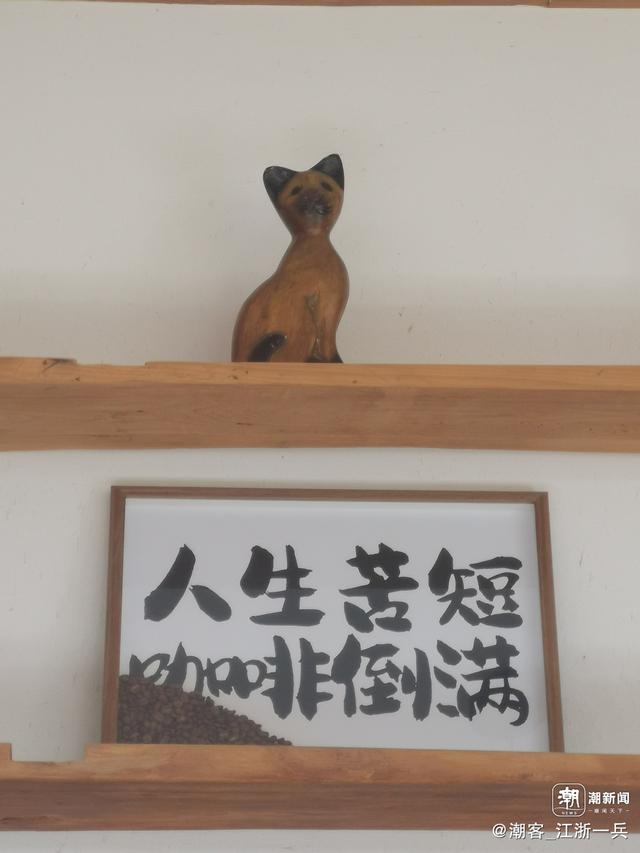 人生苦短
咖啡倒满
潮 潮新闻
NEWS
@潮客_江浙一兵